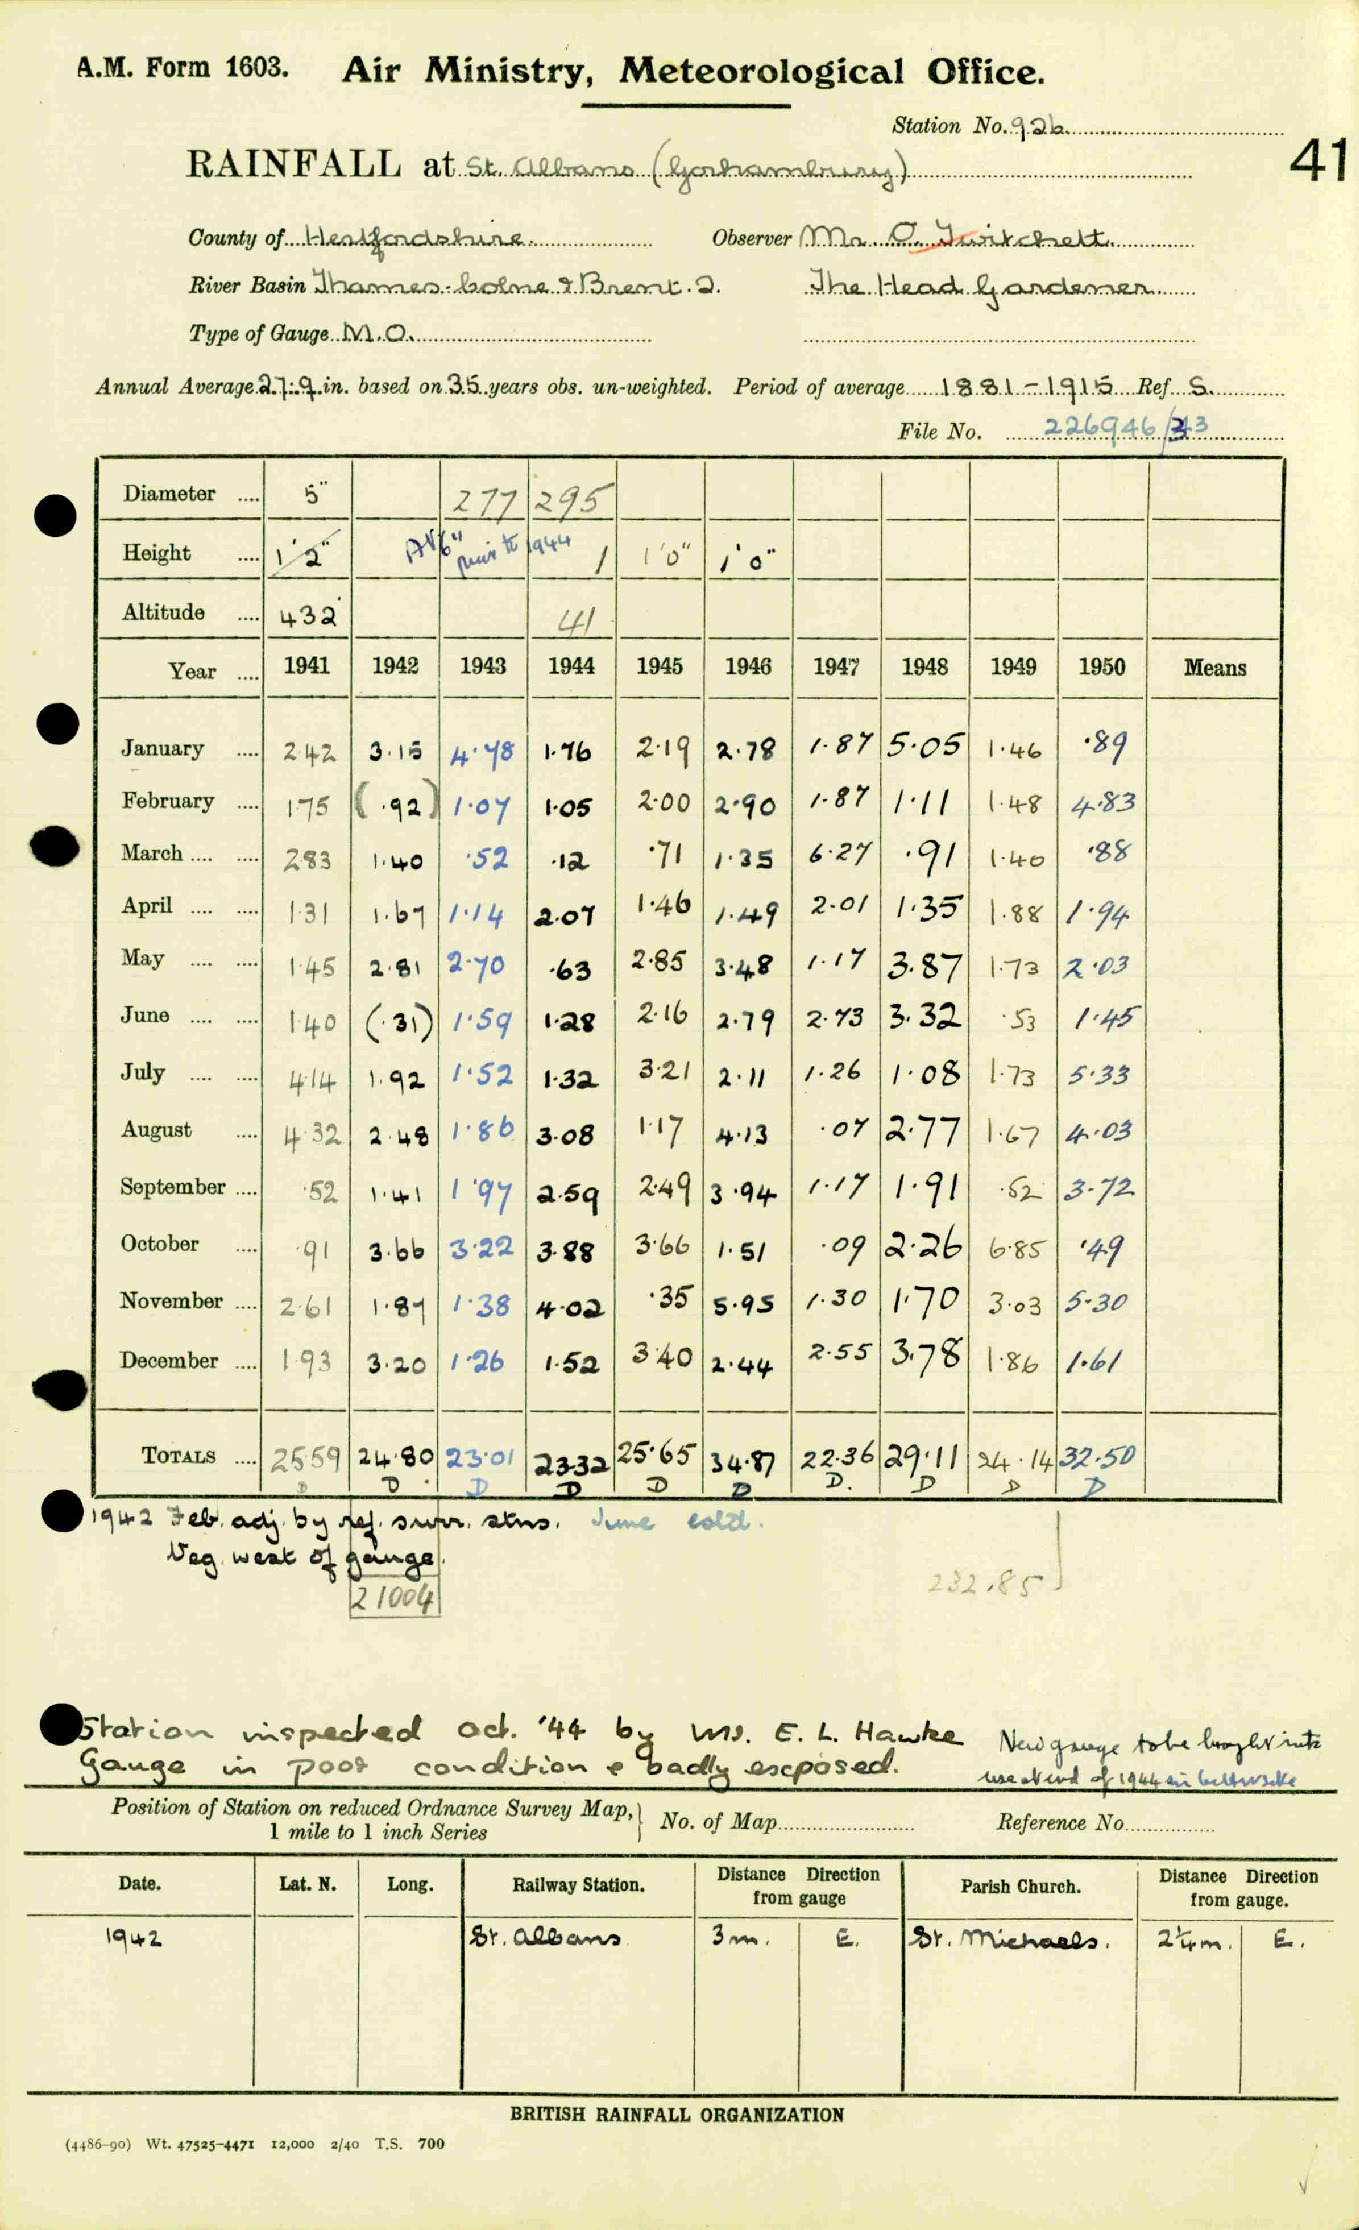 A.M. Form 1603. Air Ministry, Meteorological Office.
Station No. 926
41
RAINFALL at St. Albans (Gorhambury)
County of Hertfordshire Observer Mr. O. Twitchett
River Basin Thames-Colne & Brent. 2. The Head Gardener
Type of Gauge M.O.
Annual Average 27.9 in. based on 35 years obs. un-weighted. Period of average 1881-1915 Ref S.
File No. 226946/43
Diameter .... 5" 277 295
Height .... 1'2" prior to 1944 1 1'0" 1'0"
Altitude .... 432' 41
Year .... 1941 1942 1943 1944 1945 1946 1947 1948 1949 1950 Means
January .... 2.42 3.15 4.78 1.76 2.19 2.78 1.87 5.05 1.46 .89
February .... 1.75 (.92) 1.07 1.05 2.00 2.90 1.87 1.11 1.48 4.83
March .... .... 2.83 1.40 .52 .12 .71 1.35 6.27 .91 1.40 .88
April .... .... 1.31 1.67 1.14 2.07 1.46 1.49 2.01 1.35 1.88 1.94
May .... .... 1.45 2.81 2.70 .63 2.85 3.48 1.17 3.87 1.73 2.03
June .... .... 1.40 (.31) 1.59 1.28 2.16 2.79 2.73 3.32 .53 1.45
July .... .... 4.14 1.92 1.52 1.32 3.21 2.11 1.26 1.08 1.73 5.33
August .... 4.32 2.48 1.86 3.08 1.17 4.13 .07 2.77 1.67 4.03
September .... .52 1.41 1.97 2.59 2.49 3.94 1.17 1.91 .52 3.72
October .... .91 3.66 3.22 3.88 3.66 1.51 .09 2.26 6.85 .49
November .... 2.61 1.87 1.38 4.02 .35 5.95 1.30 1.70 3.03 5.30
December .... 1.93 3.20 1.26 1.52 3.40 2.44 2.55 3.78 1.86 1.61
TOTALS .... 25.59 24.80 23.01 23.32 25.65 34.87 22.36 29.11 24.14 32.50
D D D D D D D. D D D
1942 Feb. adj. by ref. surr. stns. June
Veg. west of gauge.
21004
232.85
Station inspected Oct. '44 by Mr. E. L. Hawke
Gauge in poor condition & badly exposed.
New gauge to be brought into
use at end of 1944 in better site
Position of Station on reduced Ordnance Survey Map,} No. of Map Reference No.
1 mile to 1 inch Series
Date. Lat. N. Long. Railway Station. Distance Direction from gauge Parish Church. Distance Direction from gauge.
1942 St. Albans 3m. E. St. Michaels. 2¼m. E.
BRITISH RAINFALL ORGANIZATION
(4486-90) Wt. 47525-4471 12,000 2/40 T.S. 700